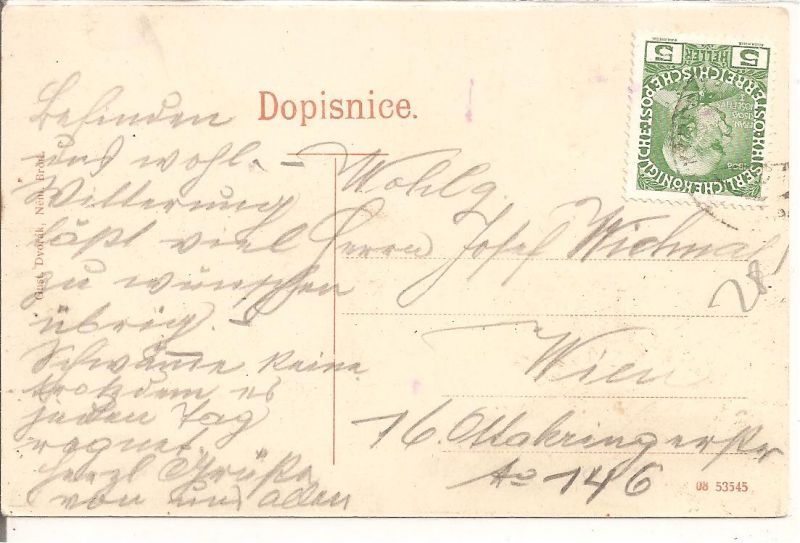 Dopisnice.
Befinden
uns wohl. –
Witterung
läßt viel
zu wünschen
übrig. –
Schwämme keine
trotzdem es
jeden Tag
regnet.
Herzl Grüße
von uns allen
Gust. Dvořák, Neu. Brod.
Wohlg
Herrn Josef Wichmal
Wien
16. Ottakringerstr
No 146
28
08 53545
5 HELLER 5
KAISERLICHE KÖNIGLICHE ÖSTERREICHISCHE POST